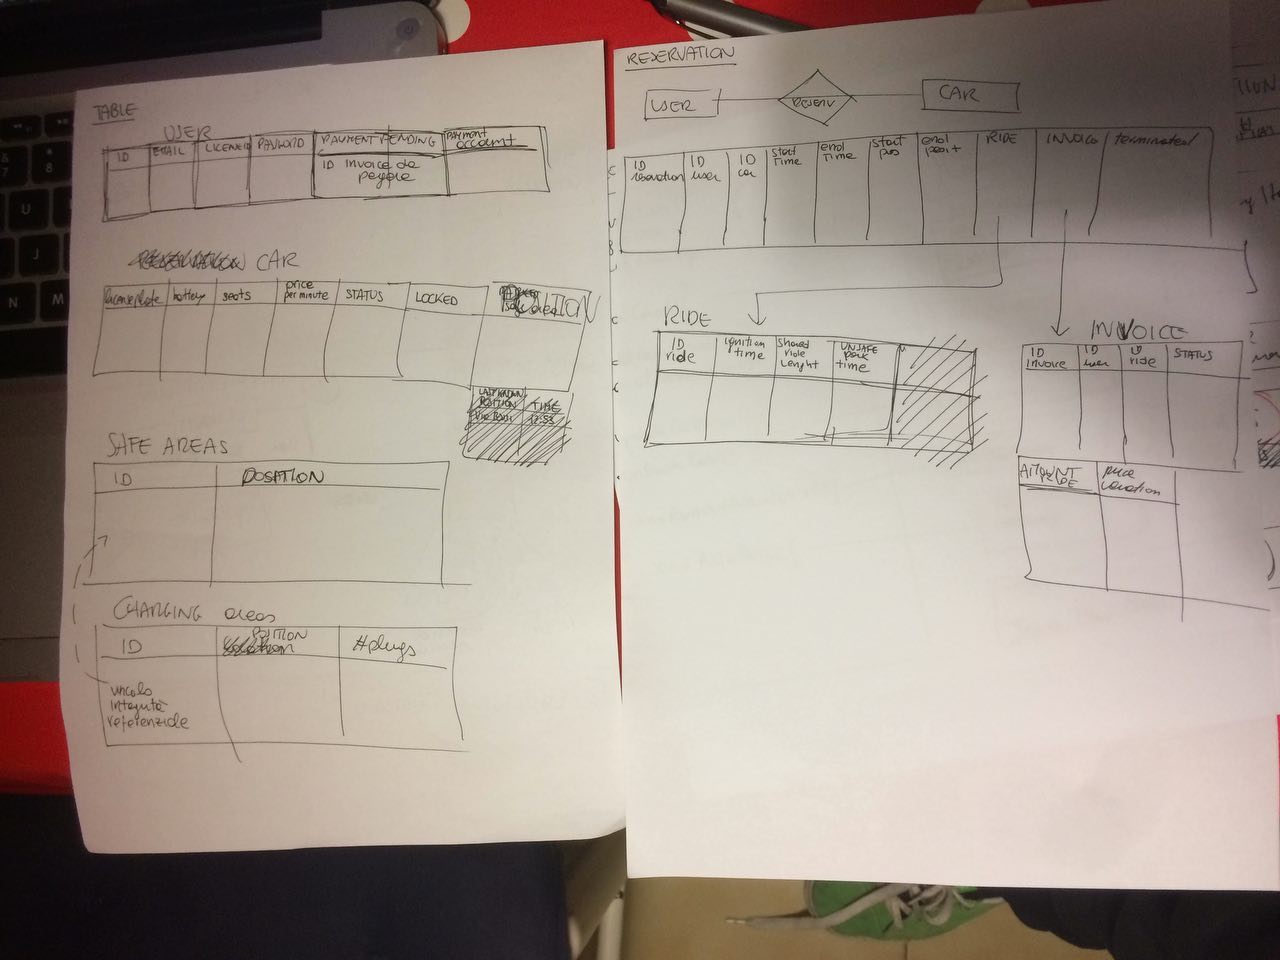 TABLE
USER
ID EMAIL LICENEID PAYMENT PENDING PAYMENT account
ID Invoice da pagare
CAR
battery seats price per minute STATUS LOCKED safe area
LAST KNOWN POSITION TIME
12:53
SAFE AREAS
ID POSITION
CHARGING areas
ID POSITION #plugs
integrità
referenziale
RESERVATION
USER CAR
ID reservation ID user ID car start Time end time start pos end RIDE INVOICE terminated
RIDE
ID ride ignition time Shared ride lenght UNSAFE park time
INVOICE
ID invoice ID user ID ride STATUS
AMOUNT price variation